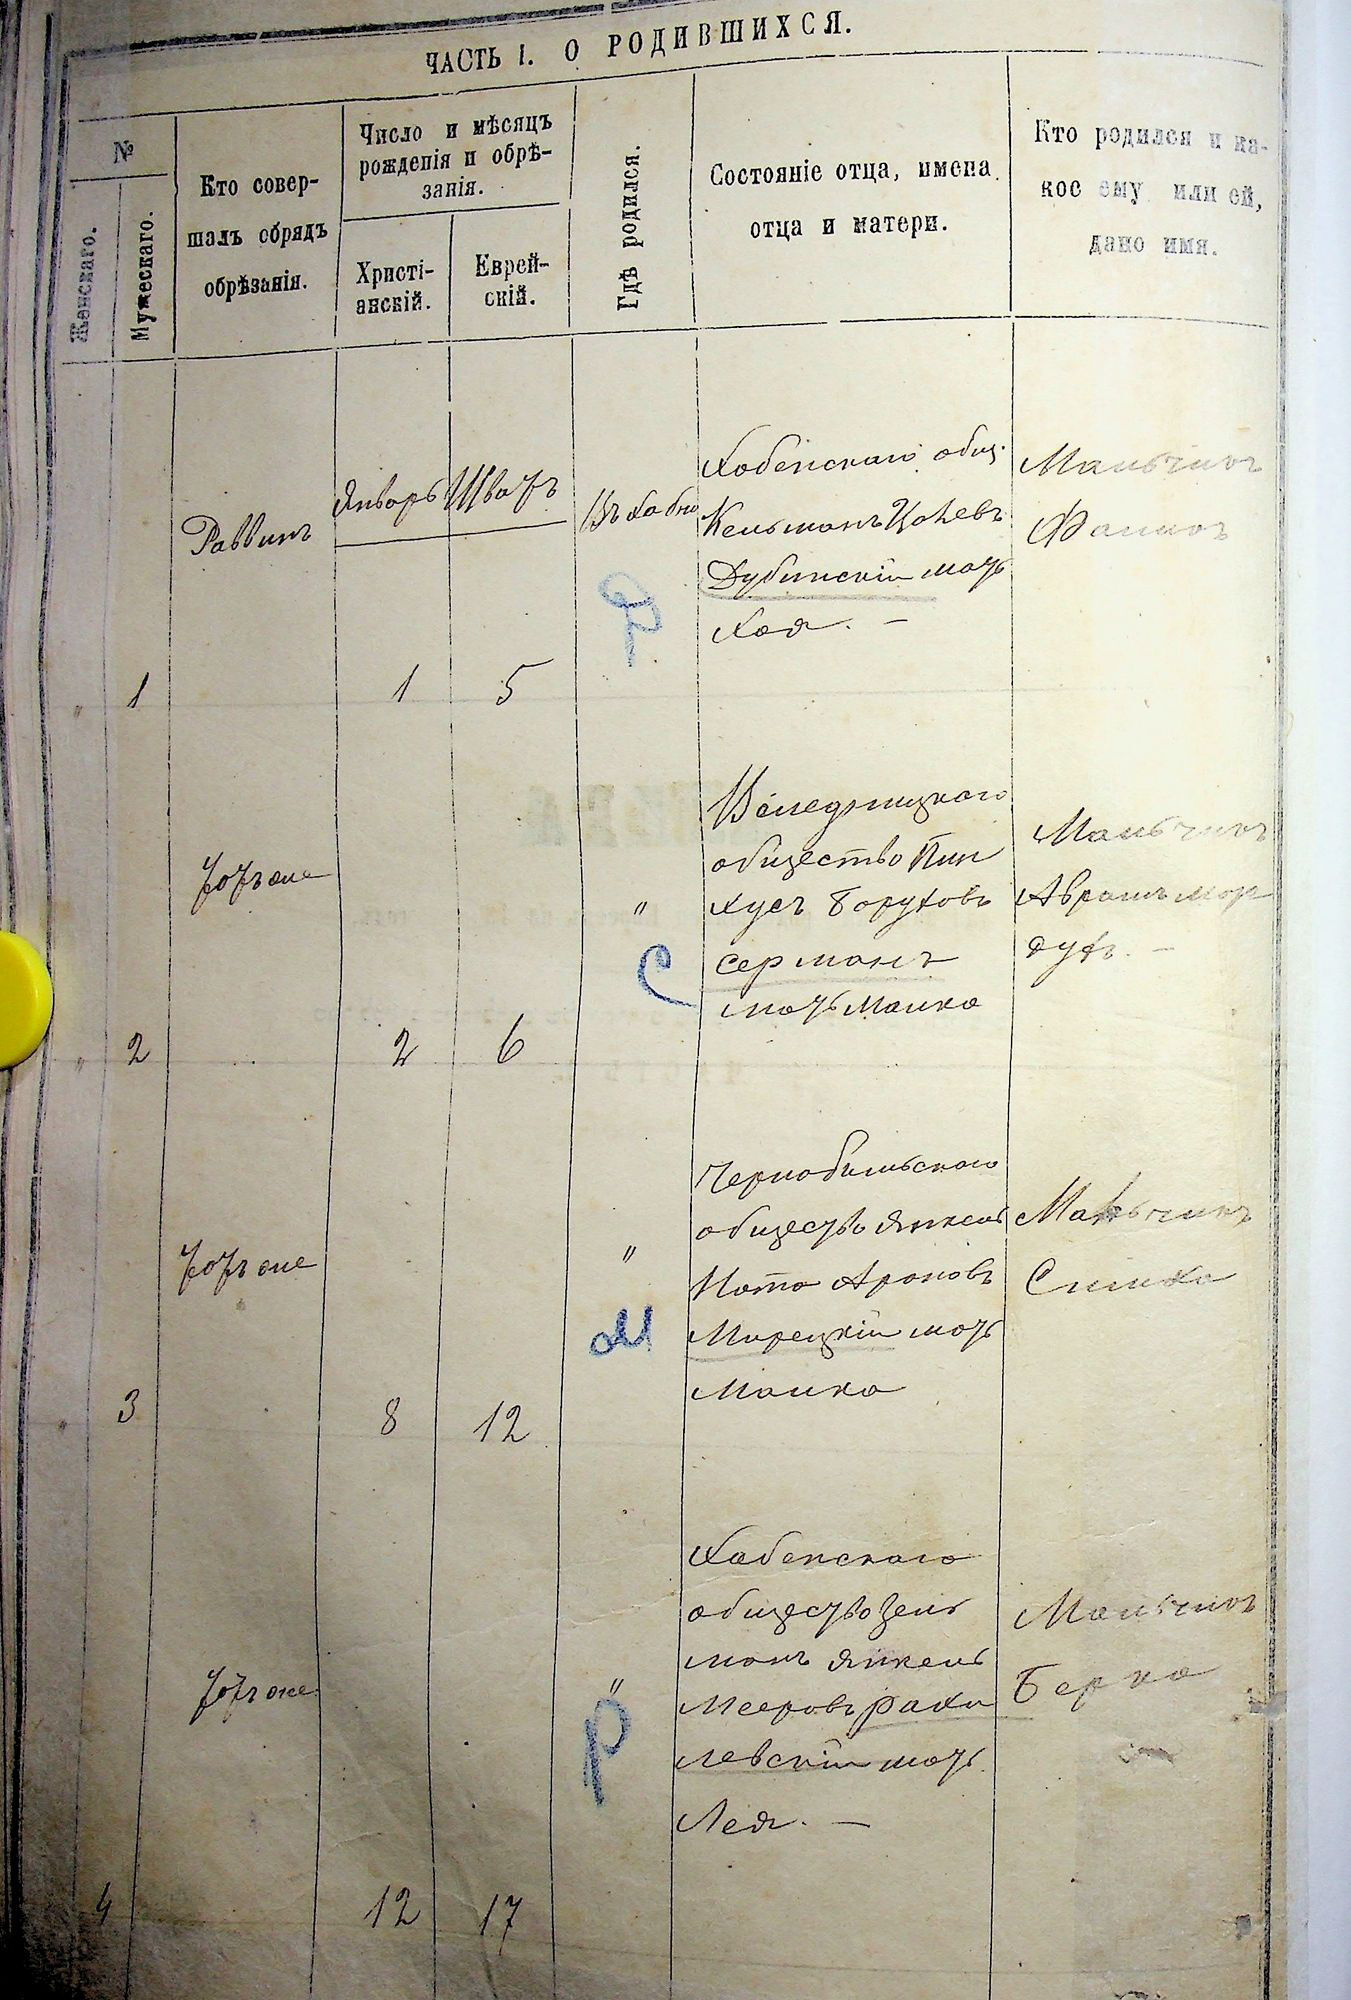 ЧАСТЬ I. О РОДИВШИХСЯ.
№
Женскаго.
Мужескаго.
Кто совер-
шалъ обрядъ
обрѣзанія.
Число и мѣсяцъ
рожденія и обрѣ-
занія.
Христі-
анскій.
Еврей-
скій.
Гдѣ родился.
Состояніе отца, имена
отца и матери.
Кто родился и ка-
кое ему или ей,
дано имя.
"
1
Раввинъ
Январь
1
Шватъ
5
Въ Хабно
Д
Хабенскаго общ.
Кельманъ
Дубинскій мать
Хая. —
Мальчикъ
"
2
Тотъ же
2
6
"
С
общество Пин
хусъ Борухов
Серманъ
мать Малка
Мальчикъ
Аврамъ Мор
духъ. —
"
3
Тотъ же
8
12
"
М
Чернобильскаго
общество Янкель
Ната Ароновъ
Мирецкій мать
Малка
Мальчикъ
Симха
4
Тотъ же
12
17
"
Р
Хабенскаго
общество Зель
манъ Янкель
Мееровъ Рахи
левскій мать
Лея. —
Мальчикъ
Берко